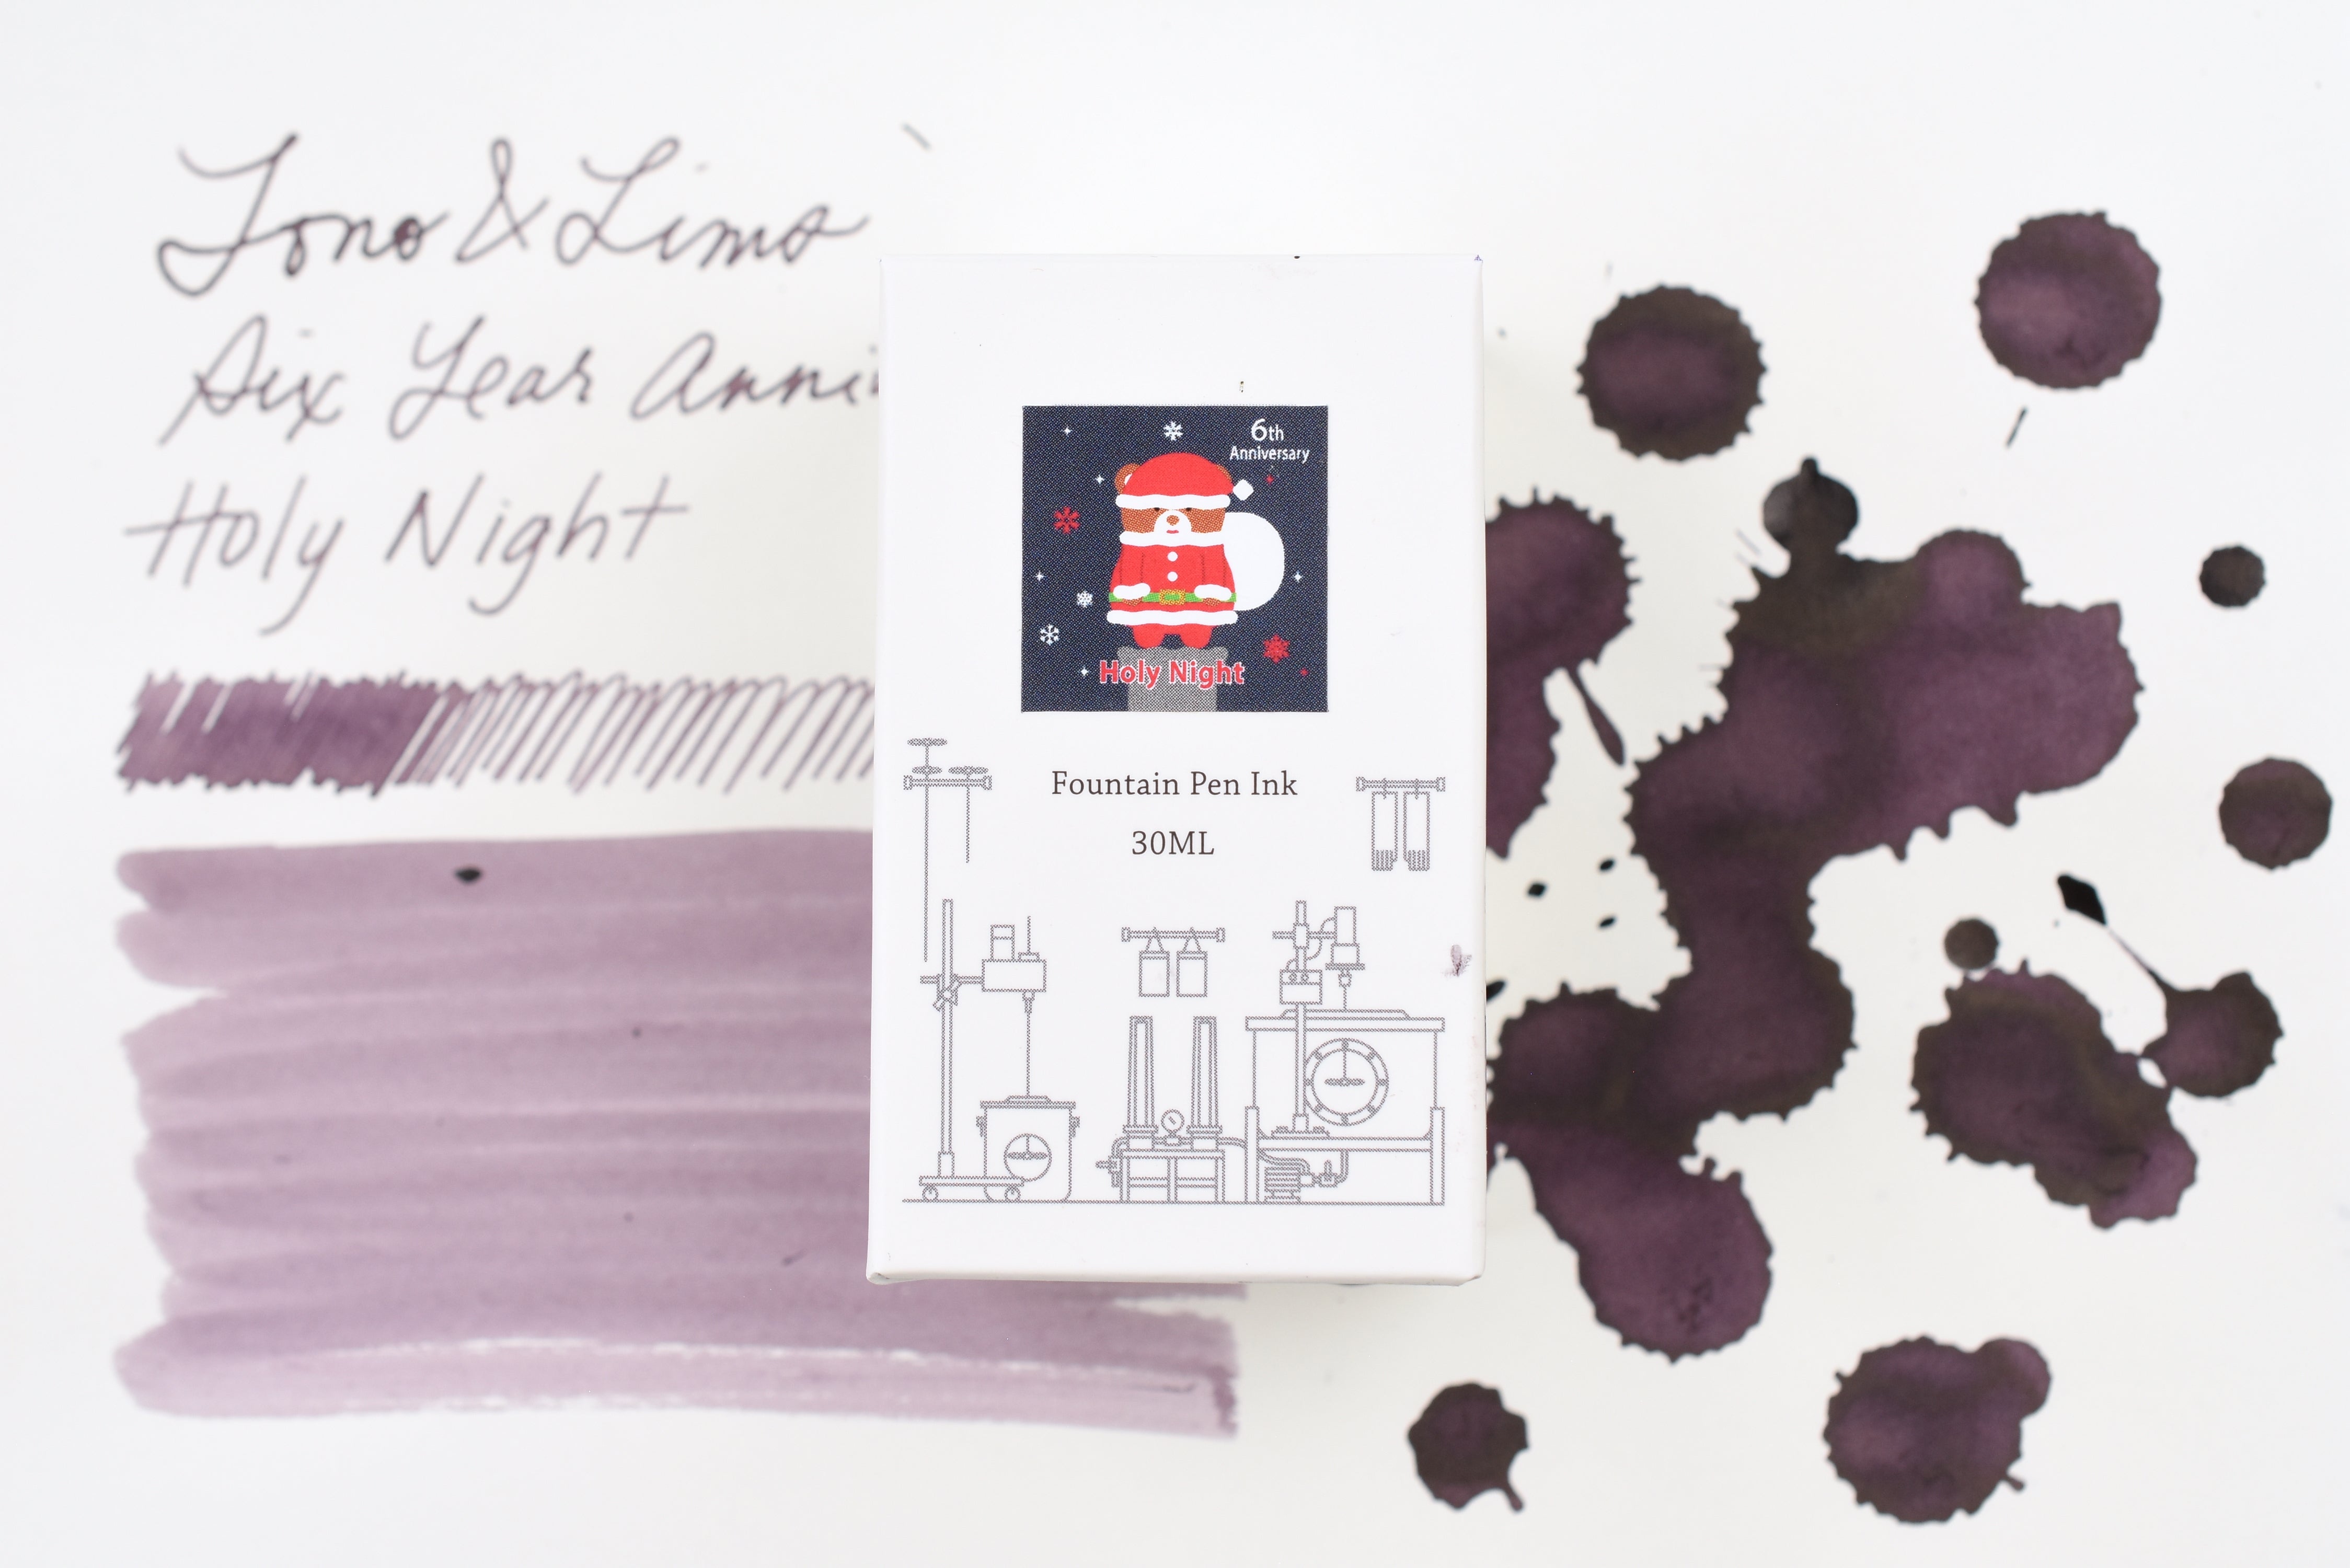 Tono & Lims
Six Year Anni
Holy Night
6th
Anniversary
Holy Night
Fountain Pen Ink
30ML